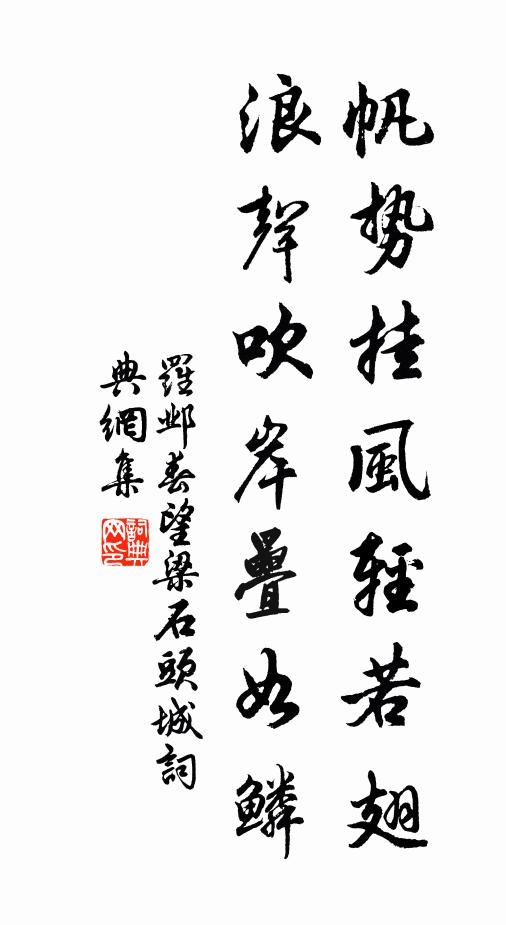 帆势挂風輕若翅
浪聲吹岸疊如鱗
羅邺春望梁石頭城詞
典網集
詞典网印